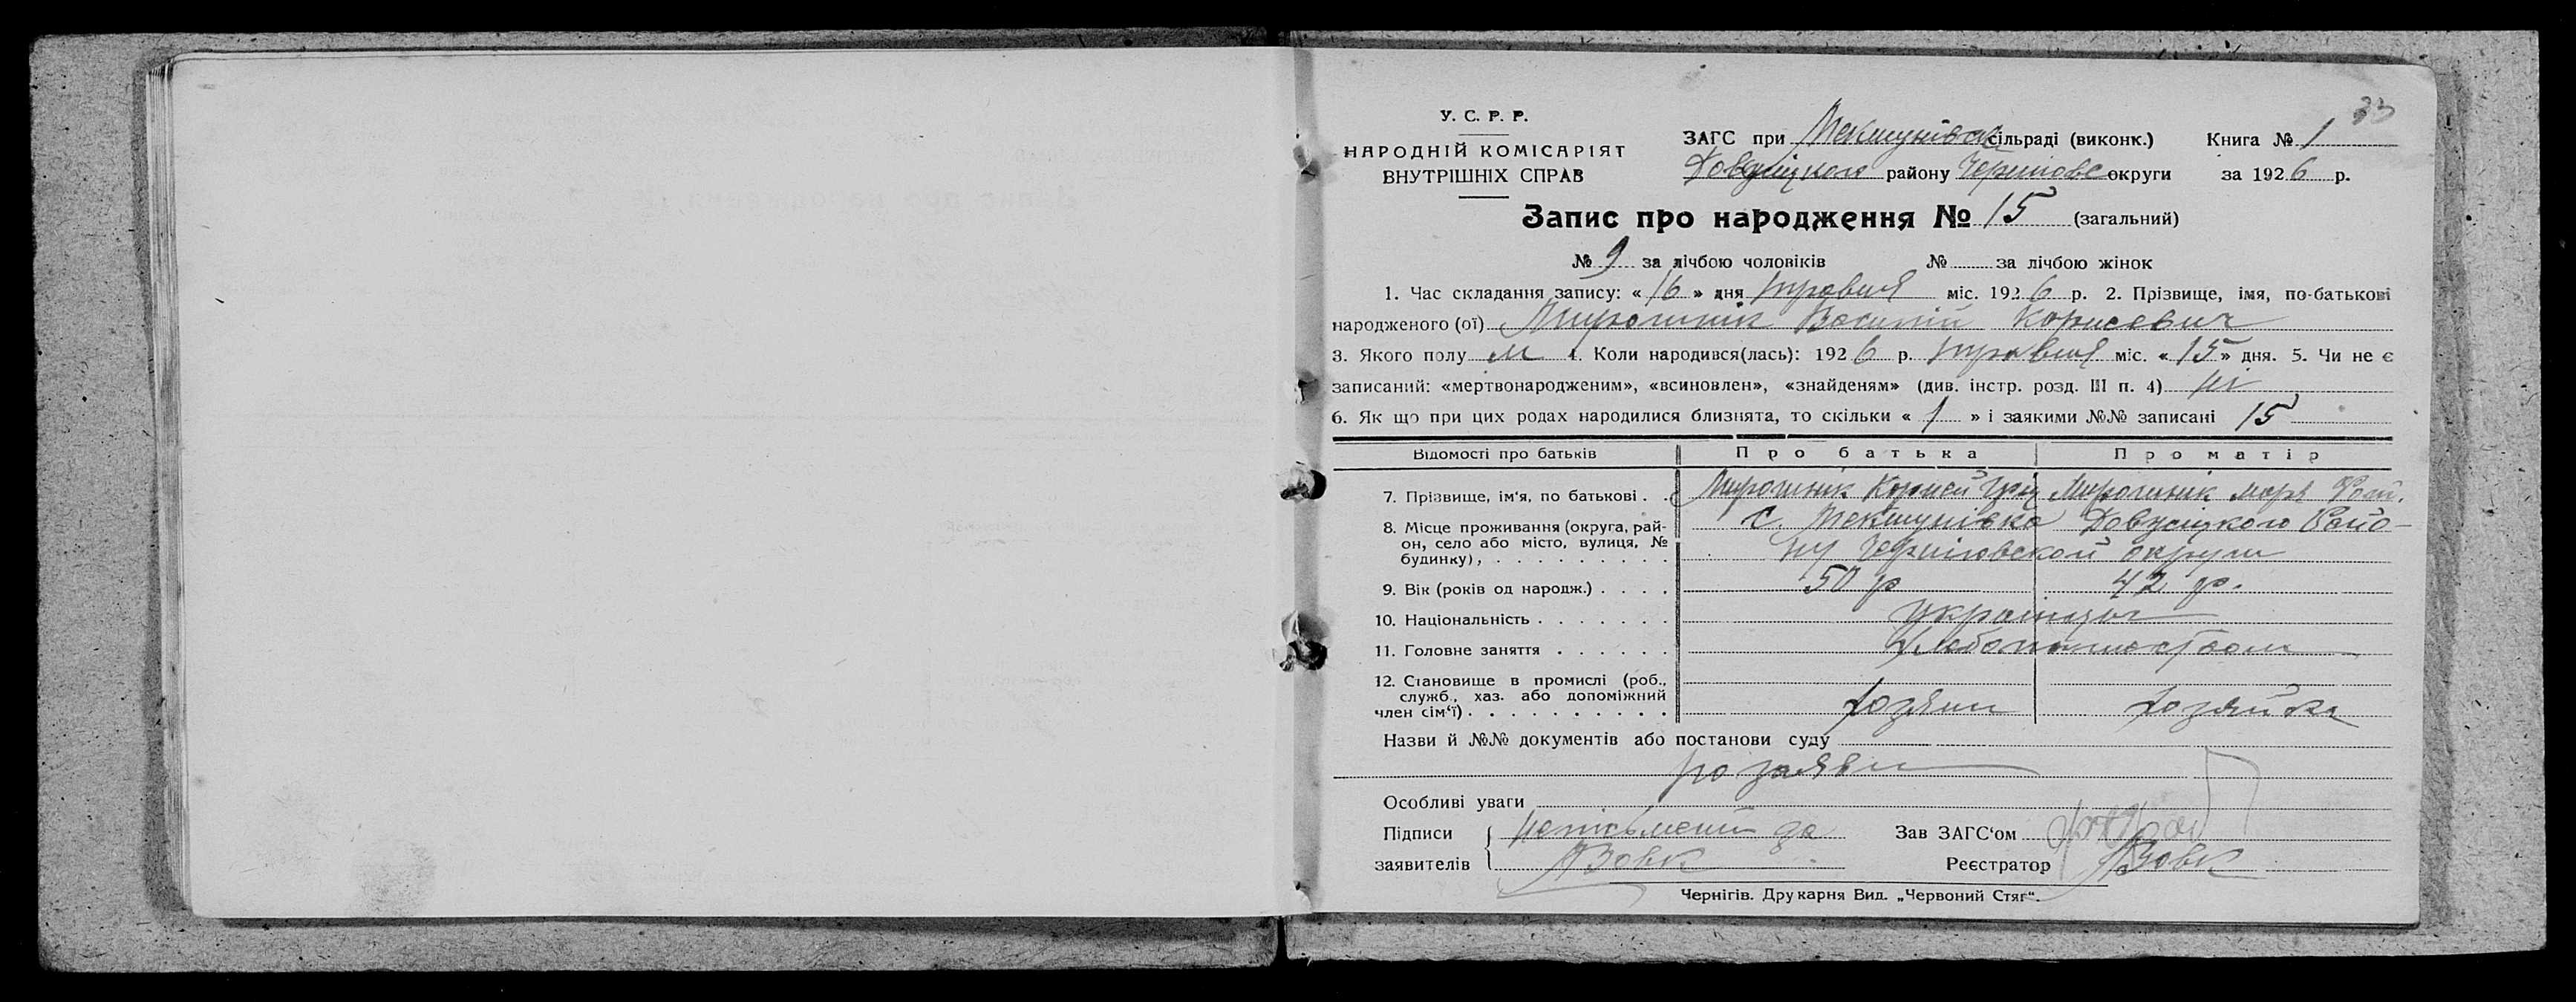 33
У. С. Р. Р.
НАРОДНІЙ КОМІСАРІЯТ
ВНУТРІШНІХ СПРАВ
ЗАГС при сільраді (виконк.) Книга № 1
району округи за 1926 р.
Запис про народження № 15 (загальний)
№ 9 за лічбою чоловіків № за лічбою жінок
1. Час складання запису: « 16 » дня травня міс. 1926 р. 2. Прізвище, імя, по-батькові
народженого (ої) Мирошник Василій Корнеевич
3. Якого полу м 4. Коли народився(лась): 1926 р. травня міс. « 15 » дня. 5. Чи не є
записаний: «мертвонародженим», «всиновлен», «знайденям» (див. інстр. розд. III п. 4) ні
6. Як що при цих родах народилися близнята, то скільки « 1 » і заякими №№ записані 15
Відомості про батьків Про батька Про матір
7. Прізвище, ім'я, по батькові . . Мирошник Корней Мирошник
8. Місце проживання (округа, рай-
он, село або місто, вулиця, №
будинку), . . . . . . . . . с. округи
9. Вік (років од народж.) . . . . 50 р 42 р.
10. Національність . . . . . . . украинцы
11. Головне заняття . . . . . . Хлебопашеством
12. Становище в промислі (роб.,
служб., хаз. або допоміжний
член сім'ї) . . . . . . . . . . хозяин хозяйка
Назви й №№ документів або постанови суду
по заяви
Особливі уваги
Підписи заявителів { неписьмений за
Вовк
Зав ЗАГС'ом
Реєстратор Вовк
Чернігів. Друкарня Вид. „Червоний Стяг“.